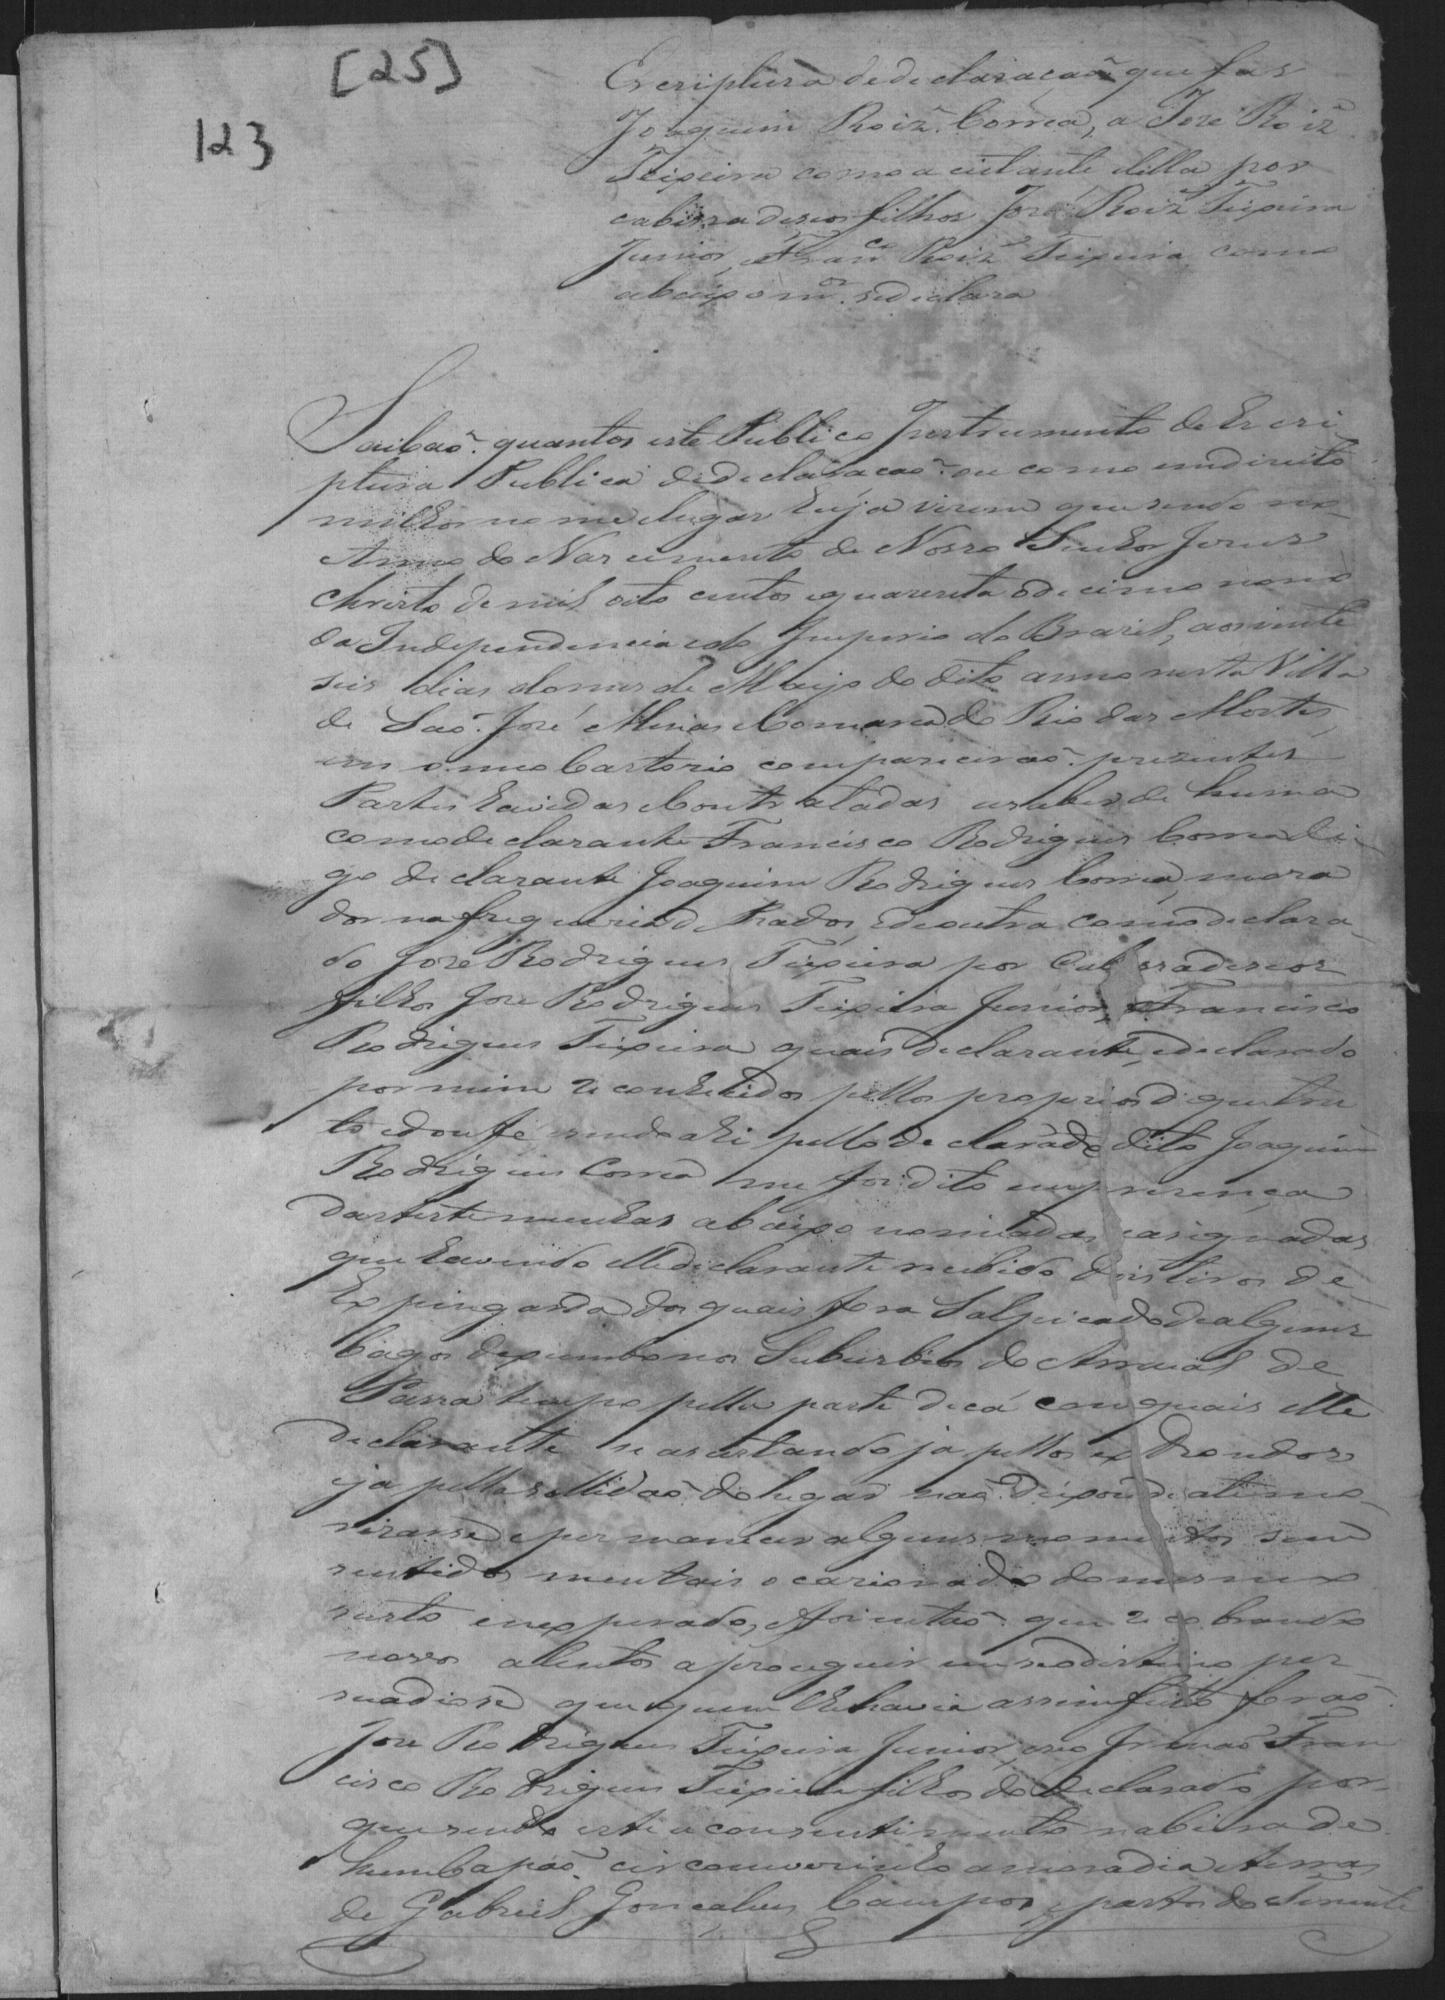 [25]
123
Escriptura de declaracaõ que fas
Joaquim Roiz̃ Correa, a Jozé Roiz̃
Teixeira como aceitante della por
cabessa de seos filhos José Roiz̃ Teixeira
Junior, e Franco Roiz̃ Teixeira como
abaixo milhor se declara
Saibaõ quantos este Publico Instrumento de Escri
ptura Publica de declaracaõ ou como em direito
milhor nome e lugar haja virem que sendo no
Anno do Nascimento de Nosso Senhor Jesus
Christo de mil oito centos e quarenta decimo nono
da Independencia e do Imperio do Brazil, aos vinte
seis dias do mes de Mayo do dito anno nesta Villa
de Saõ José Minas Comarca do Rio das Mortes
em o meo Cartorio compareceraõ prezentes
Partes havidas e Contratadas a saber de huma
como declarante Francisco Rodrigues Correa di
go declarante Joaquim Rodrigues Correa, mora
dor na freguezia de Prados, e de outra como declara
do José Rodrigues Teixeira por Cabessa de seos
filhos José Rodrigues Teixeira Junior, e Francisco
Rodrigues Teixeira quais declarante, e declarado
por mim reconhecidos pellos proprios de que tra
to e dou fé, e sendo ahi pello declarado dito Joaquim
Rodrigues Correa me foi dito em presença
das testemunhas abaixo nomiadas e asignadas
que havendo elle declarante recebido dois tiros de
Espingarda dos quais fora Salpicado de alguns
bagos de xumbo nos Suburbios do Arraial de
Passa tempo pella parte de cá com quais elle
declarante se asustando ja pellos extrondos
e ja pella sollidaõ do lugar naõ deixou de atimo
rizarse e permanecer alguns momentos sem
sentidos mentais ocazionado do mesmo
susto inexperado, e foi entaõ que recobrando
novos alentos a proseguir em seo destino per
suadiose que quem lhe havia assim feito foraõ
José Rodrigues Teixeira Junior, e seo Irmaõ Fran
cisco Rodrigues Teixeira filhos do declarado, por
que sendo este acontecimento na beira de
hum Capaõ circomvezinho a moradia e terras
de Gabriel Gonçalves Campos, e partes do Tenente